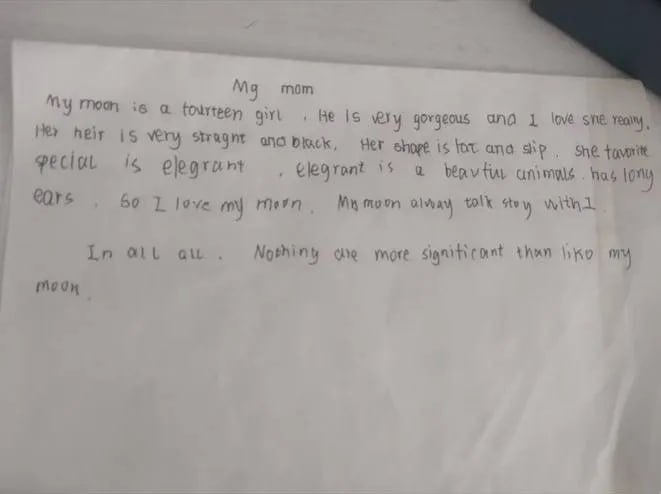 Mg mom
My moon is a tourteen girl . He Is very gorgeous and I love she really.
Her heir is very stragnt and black, Her shape is fat and slip . she tavorite
special is elegrant . elegrant is a beavtui animals. has long
ears . So I love my moon. My moon alway talk stoy with I.
In all all . Nothing are more significant than like my
moon.